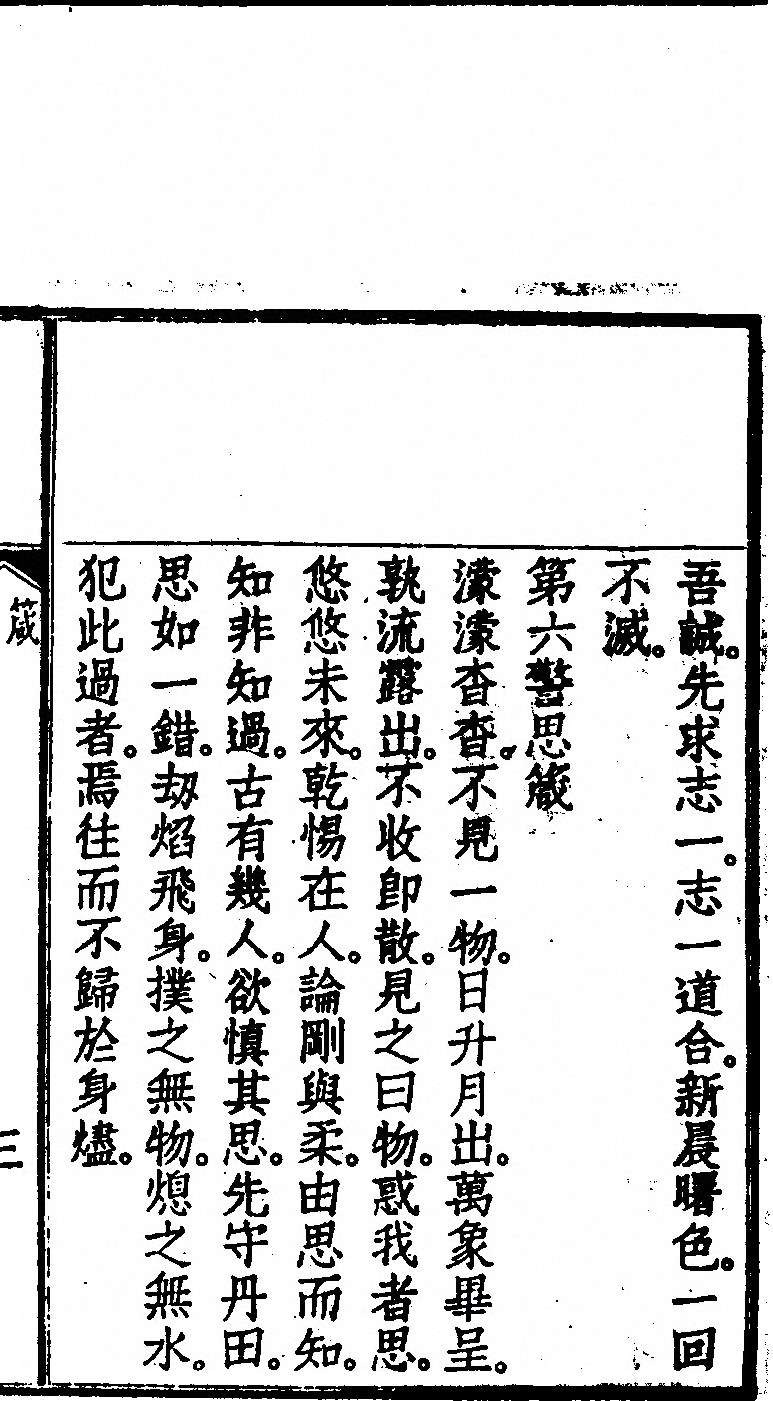 吾誠。先求志一。志一道合。新晨曙色。一回
不滅。
第六警思箴
濛濛杳杳。不見一物。日升月出。萬象畢呈。
孰流露出。不收卽散。見之曰物。惑我者思。
悠悠未來。乾惕在人。論剛與柔。由思而知。
知非知過。古有幾人。欲愼其思。先守丹田。
思如一錯。劫焰飛身。撲之無物。熄之無水。
犯此過者。焉往而不歸於身燼。
箴
三